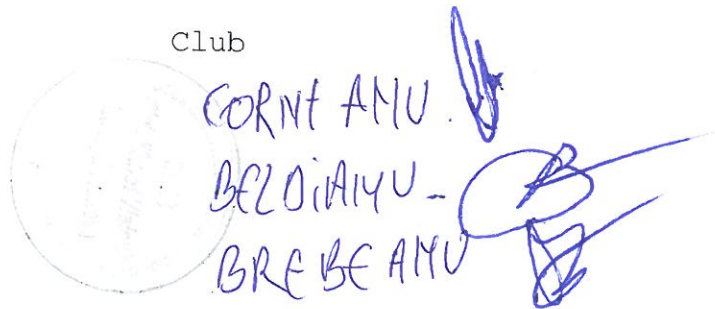 Club
CORNEANU.
BELDIANU-
BREBEANU